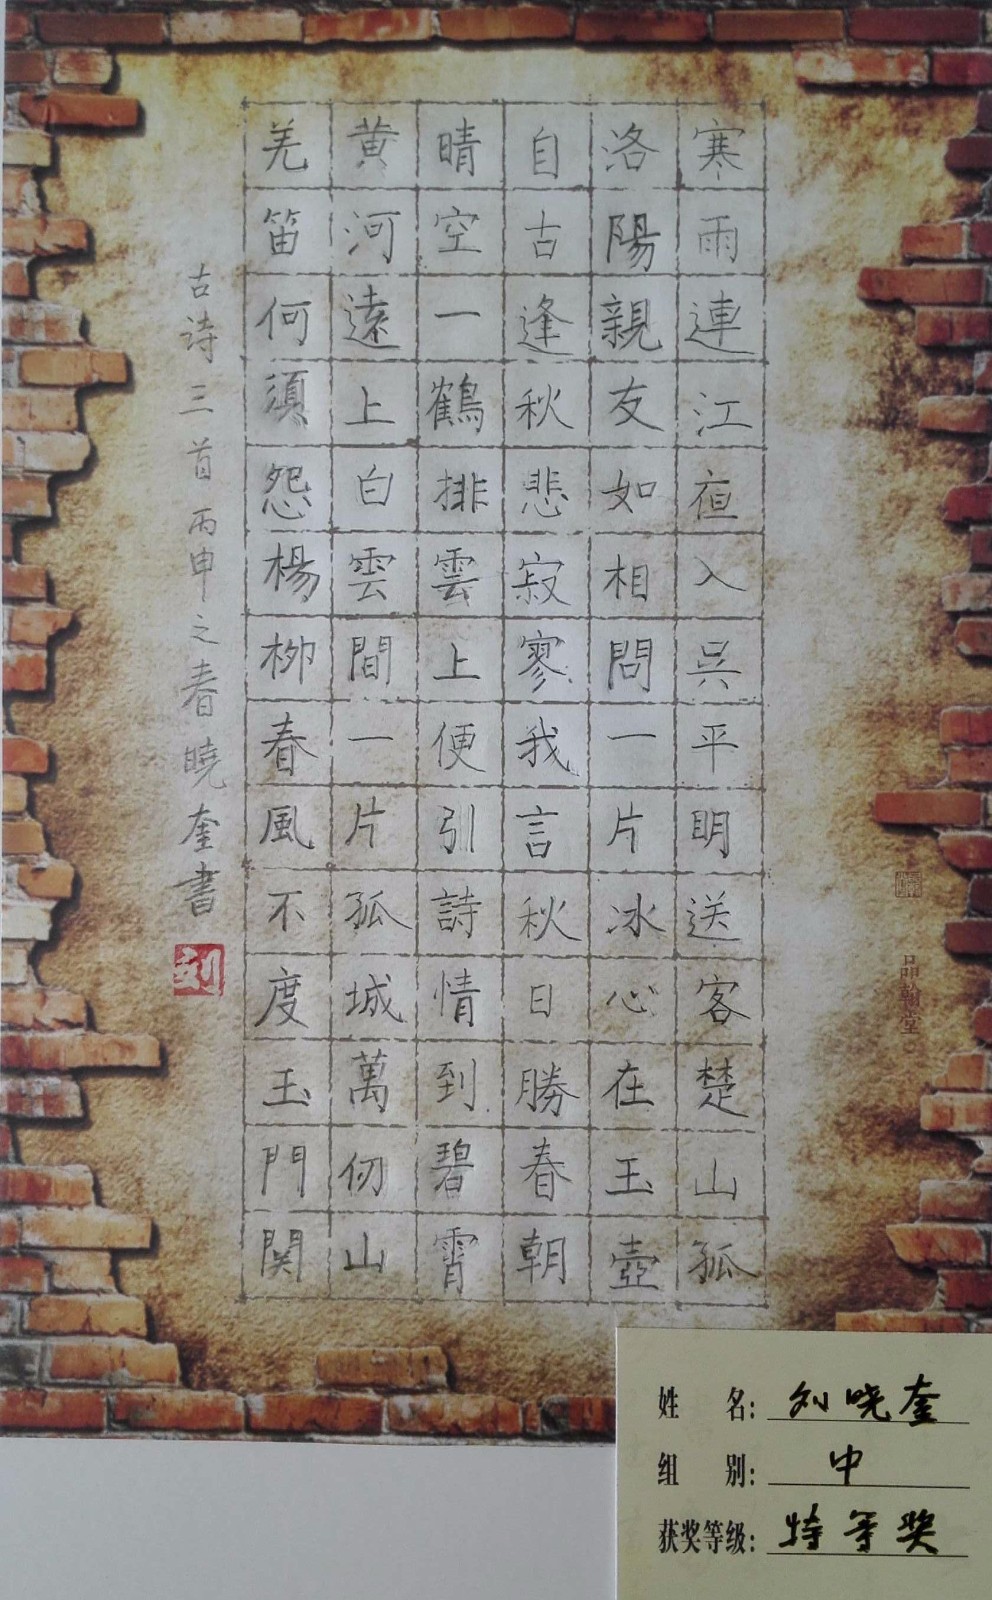 寒雨連江亱入呉平眀送客楚山孤
洛陽親友如相問一片冰心在玉壺
自古逢秋悲寂寥我言秋日勝春朝
晴空一鶴排雲上便引詩情到碧霄
黄河遠上白雲間一片孤城萬仞山
羌笛何須怨楊柳春風不度玉門関
古詩三首丙申之春曉奎書
刘
品翰堂
姓 名: 刘晓奎
组 别: 中
获奖等级: 特等奖